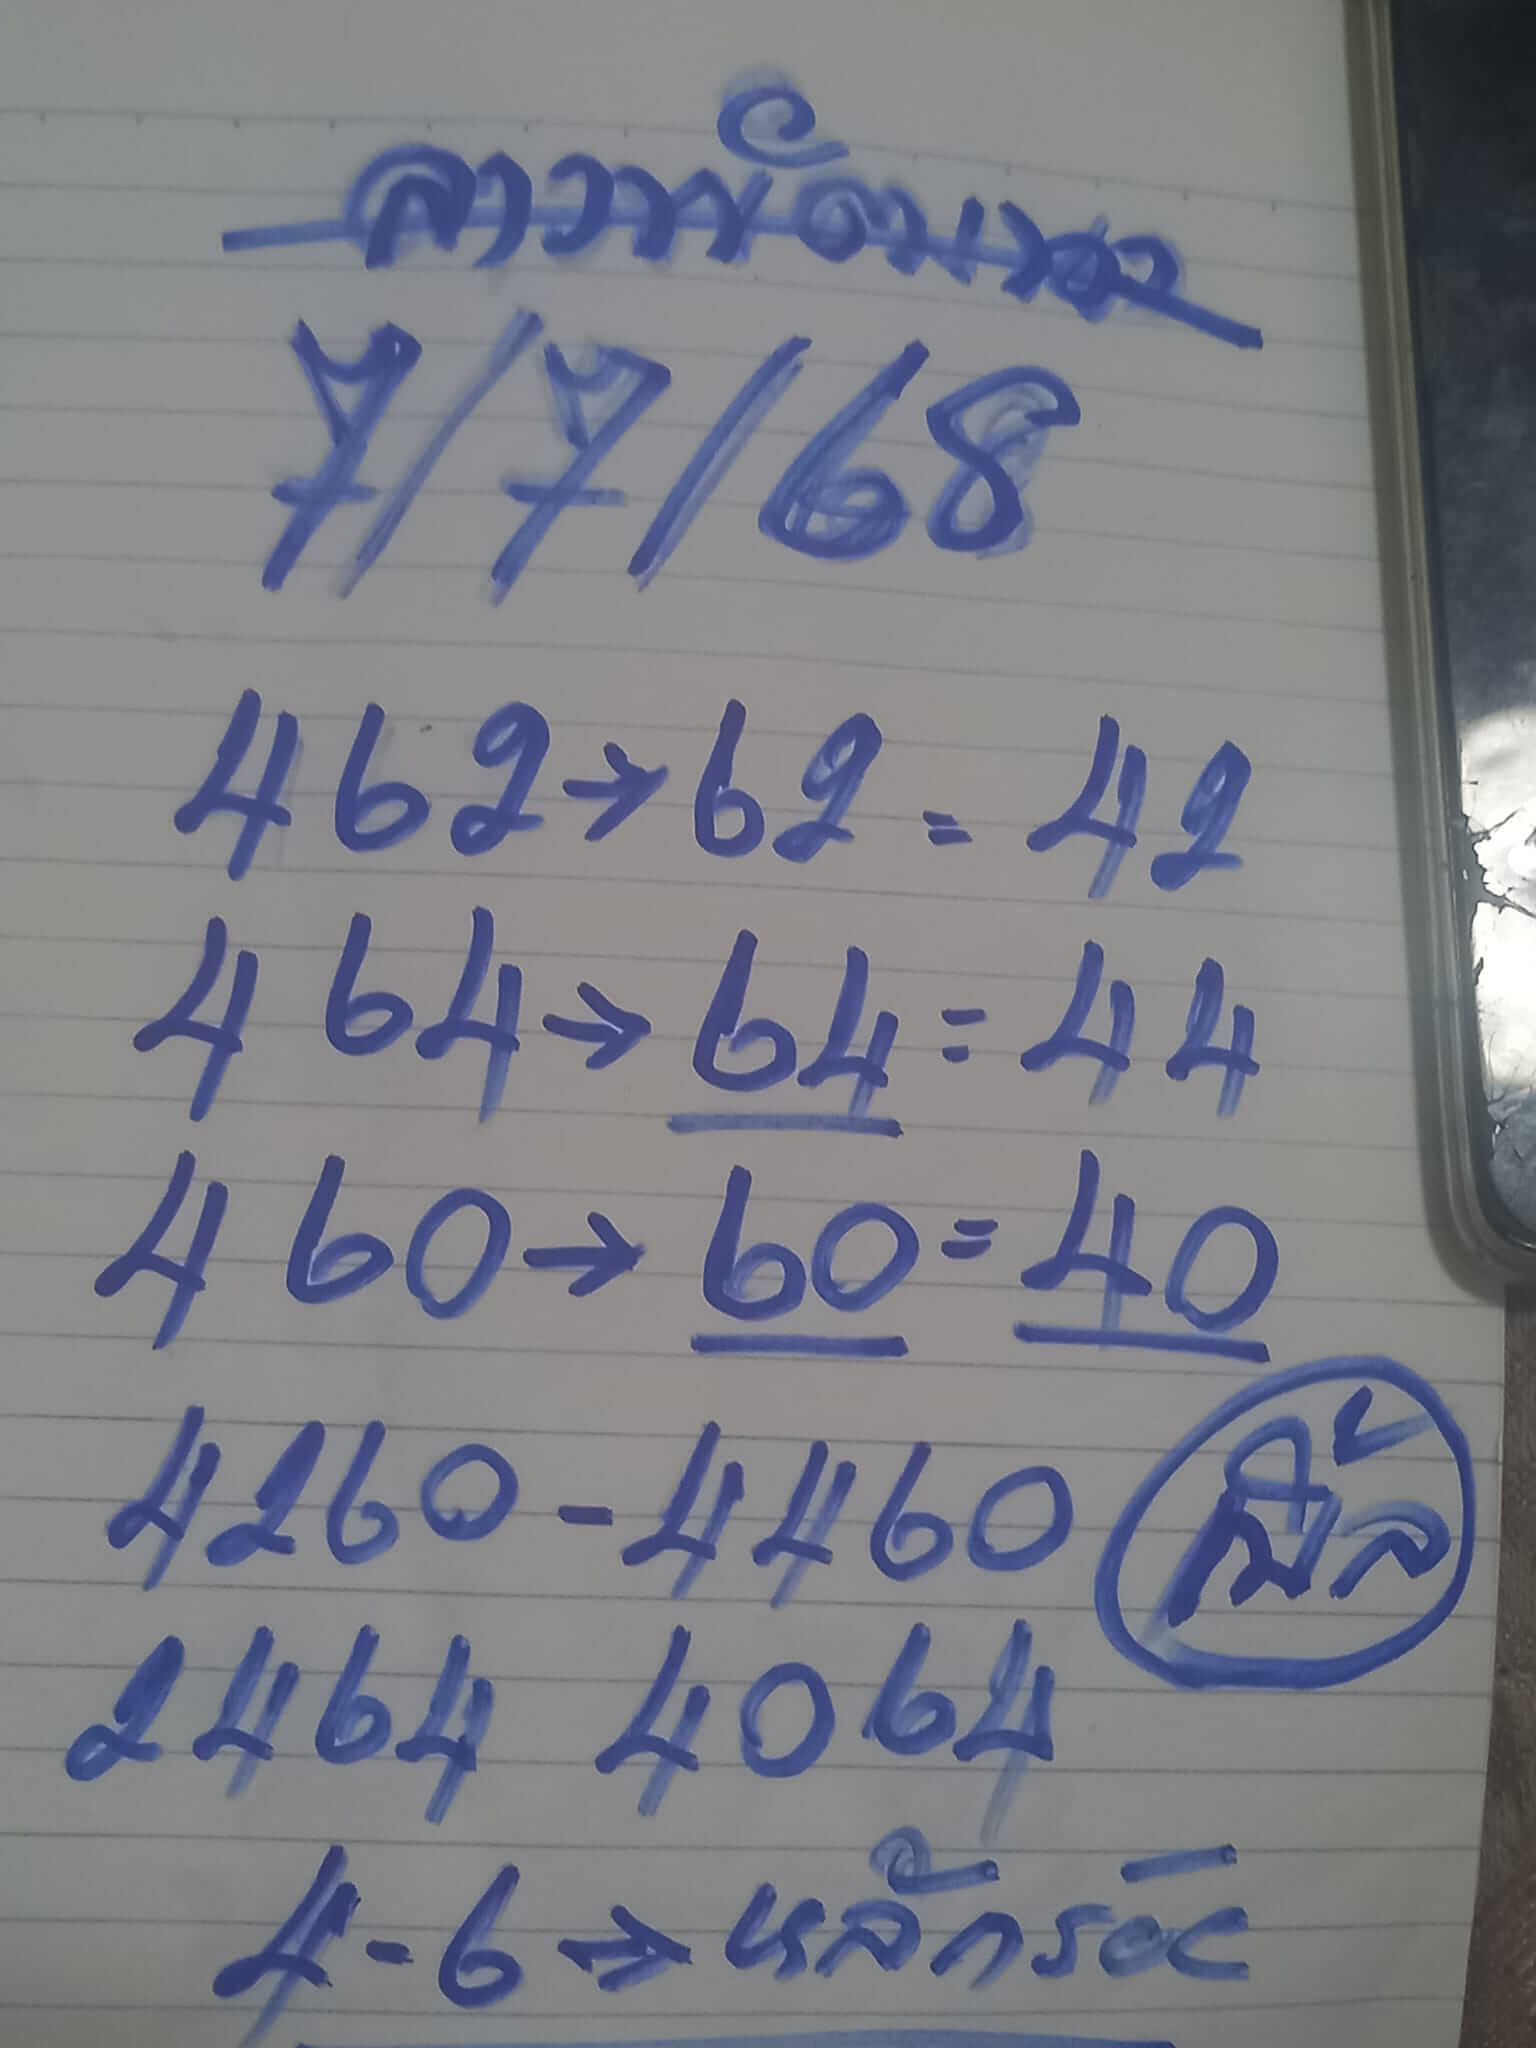 ลาวพัฒนา
7/7/68
462→62=42
464→64=44
460→60=40
4260-4460
2464 4064
4-6→หลักร้อย